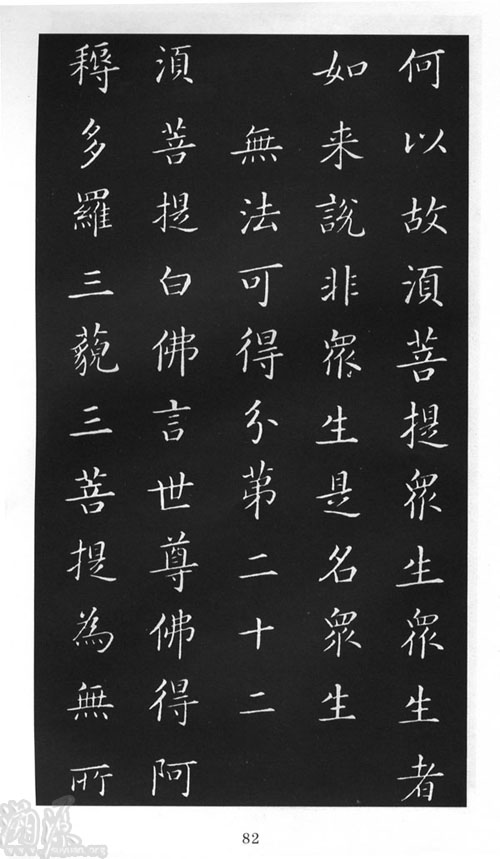 何以故湏菩提衆生衆生者
如来說非衆生是名衆生
無法可得分第二十二
湏菩提白佛言世尊佛得阿
耨多羅三藐三菩提為無所
82